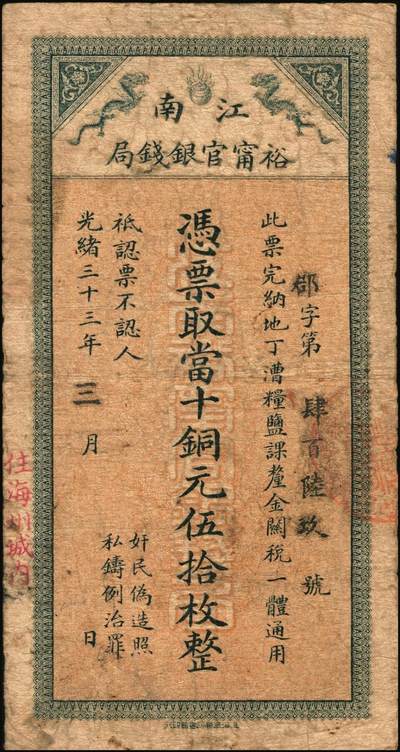 江南
裕甯官銀錢局
字第肆百陸玖號
此票完納地丁漕糧鹽課釐金關稅一體通用
憑票取當十銅元伍拾枚整
祗認票不認人
光緒三十三年三月 日
奸民偽造照
私鑄例治罪
往海州城内